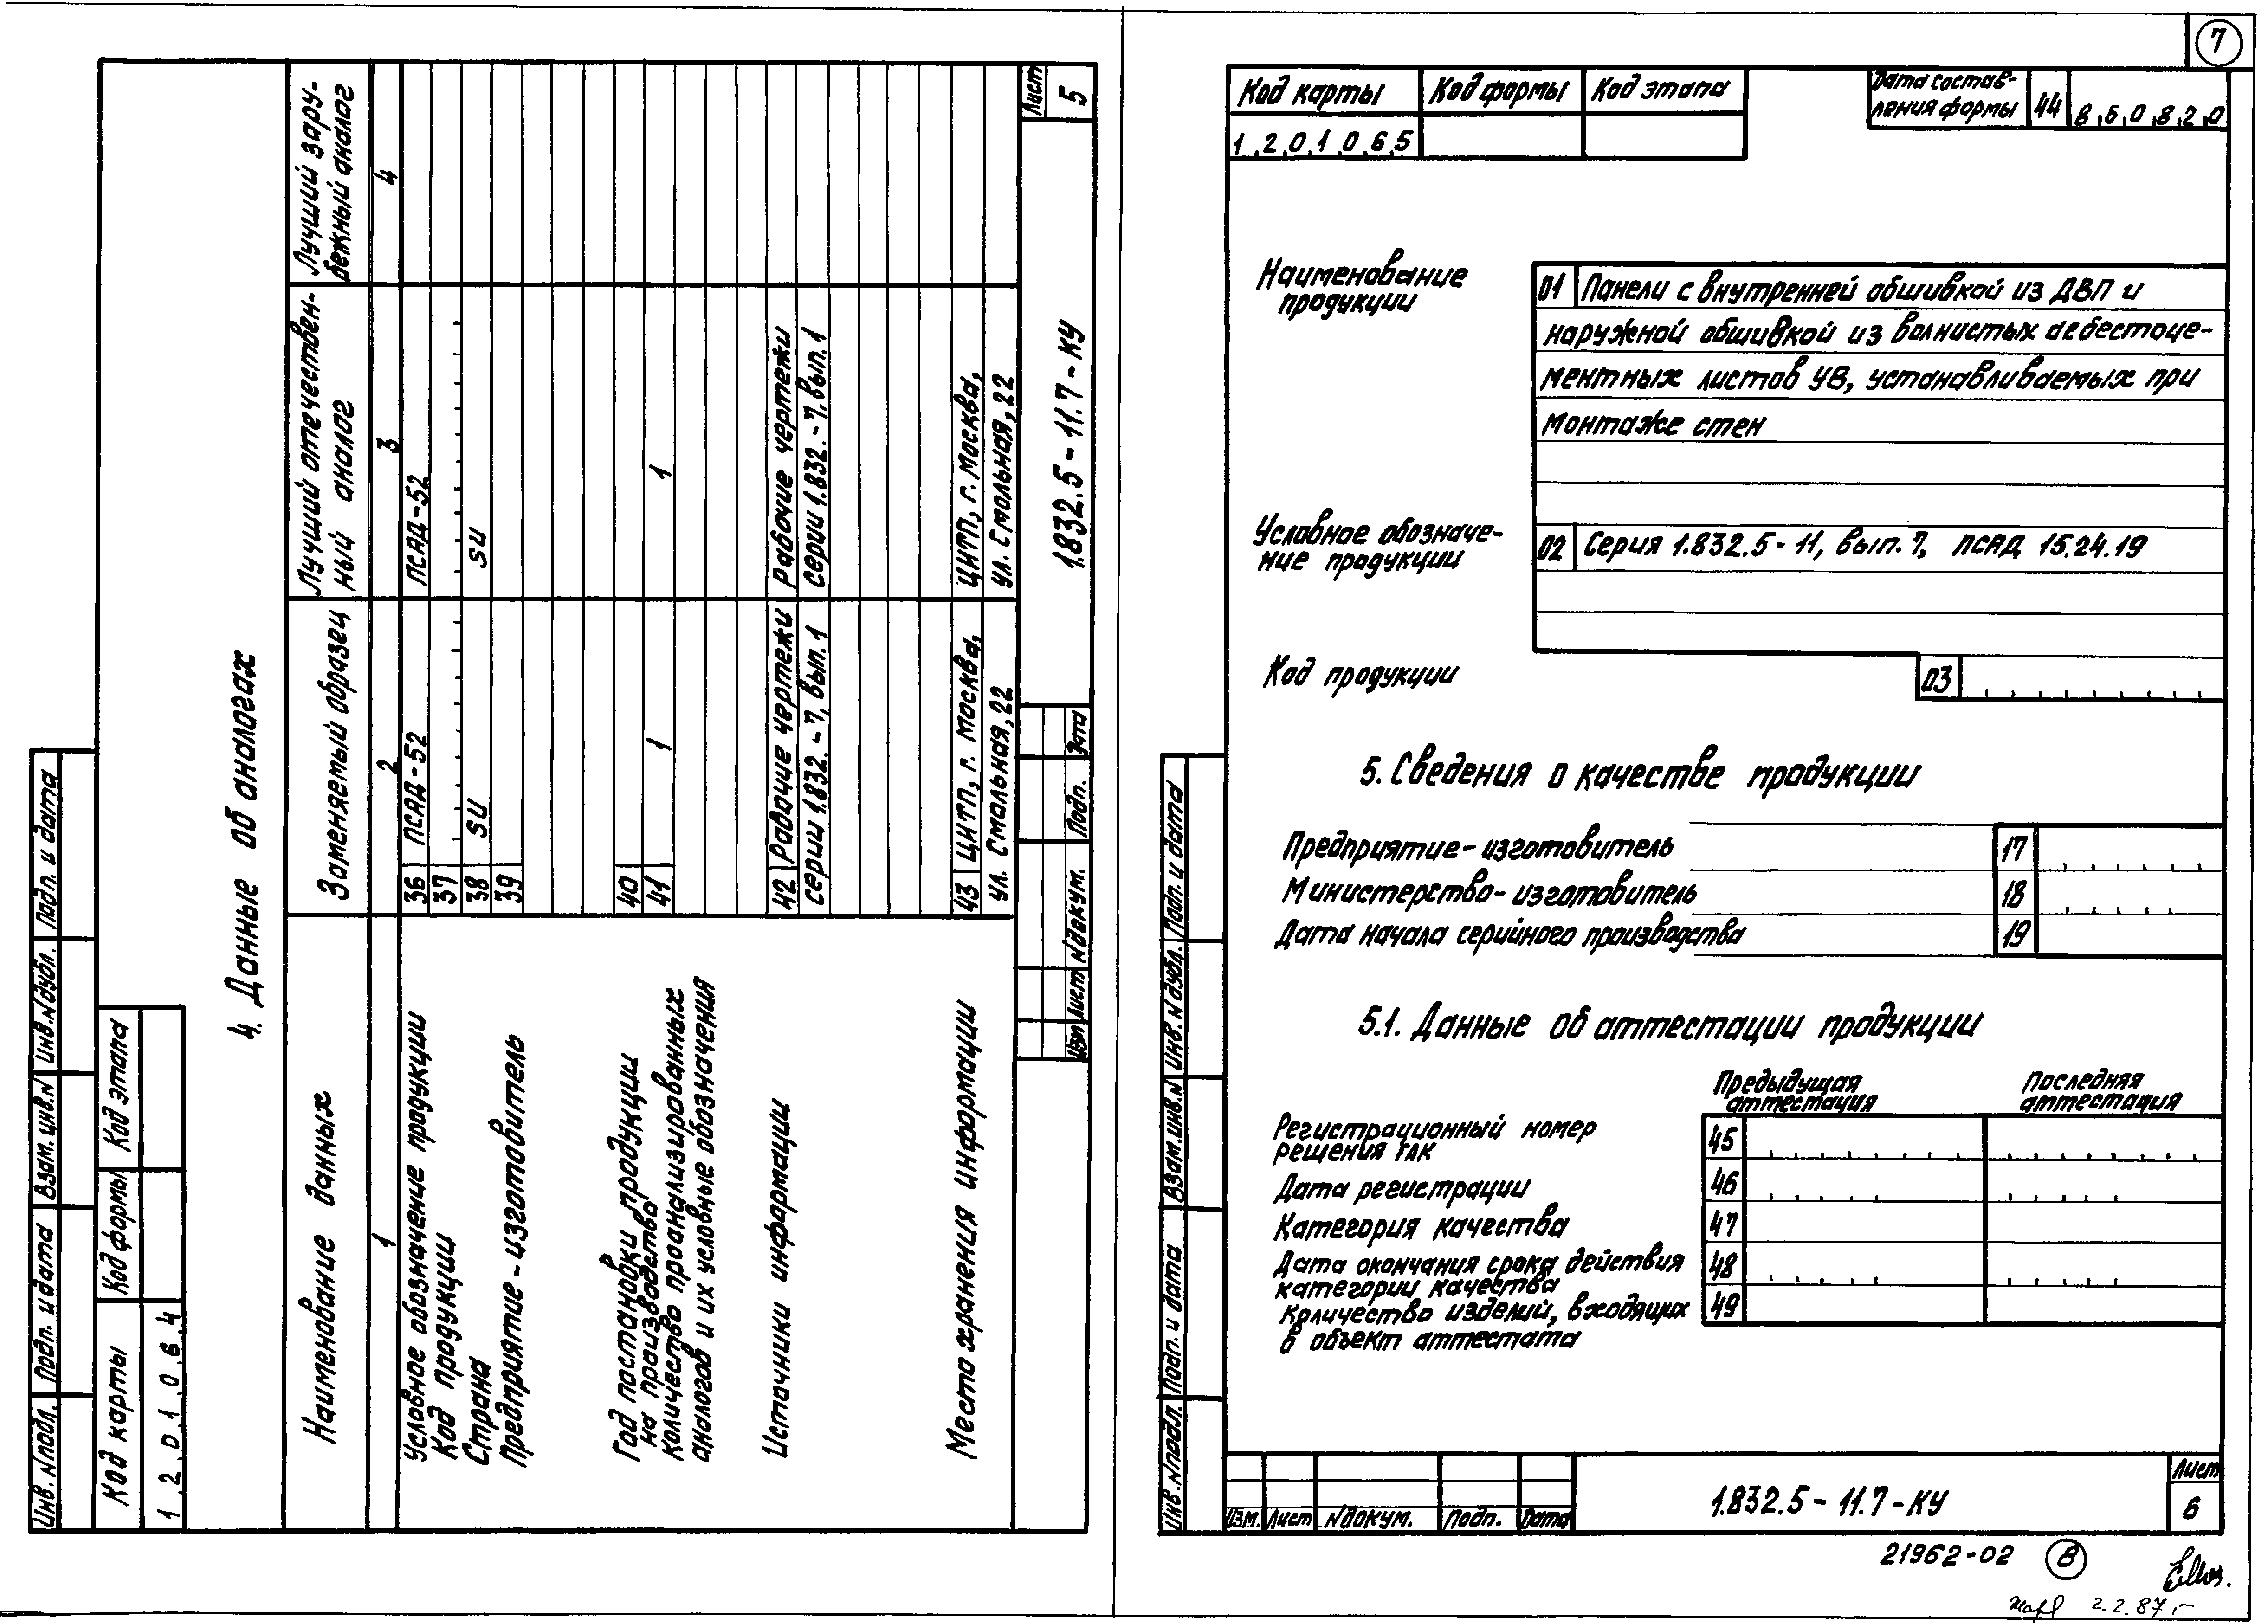 Код карты
Код формы
Код этапа
1.2.0.1.0.6.4
4. Данные об аналогах
Наименование данных
Заменяемый образец
Лучший отечествен-
ный аналог
Лучший зару-
бежный аналог
1
2
3
4
Условное обозначение продукции
36
ПСАД-52
ПСАД-52
Код продукции
37
Страна
38
SU
SU
Предприятие-изготовитель
39
Год постановки продукции
на производство
40
Количество проанализированных
аналогов и их условные обозначения
41
1
1
Источники информации
42
Рабочие чертежи
серии 1.832.-7, вып.1
Рабочие чертежи
серии 1.832.-7, вып.1
Место хранения информации
43
ЦИТП, г. Москва,
ул. Смольная, 22
ЦИТП, г. Москва,
ул. Смольная, 22
Изм
Лист
N докум.
Подп.
Дата
1.832.5-11.7-КУ
Лист
5
Инв. N подл.
Подп. и дата
Взам. инв. N
Инв. N дубл.
Подп. и дата
7
Код карты
Код формы
Код этапа
1.2.0.1.0.6.5
Дата состав-
ления формы
44
8.6.0.8.2.0
Наименование
продукции
01 Панели с внутренней обшивкой из ДВП и
наружной обшивкой из волнистых асбестоце-
ментных листов УВ, устанавливаемых при
монтаже стен
Условное обозначе-
ние продукции
02 Серия 1.832.5-11, вып. 7, ПСАД 15.24.19
Код продукции
03
5. Сведения о качестве продукции
Предприятие-изготовитель 17
Министерство-изготовитель 18
Дата начала серийного производства 19
5.1. Данные об аттестации продукции
Предыдущая
аттестация
Последняя
аттестация
Регистрационный номер
решения ГАК
45
Дата регистрации 46
Категория качества 47
Дата окончания срока действия
категории качества
48
Количество изделий, входящих
в объект аттестата
49
Инв. N подл.
Подп. и дата
Взам. инв. N
Инв. N дубл.
Подп. и дата
Изм.
Лист
N докум.
Подп.
Дата
1.832.5-11.7-КУ
Лист
6
21962-02
8
2.2.87г